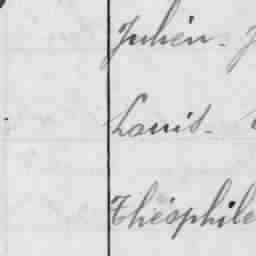 Julien -
Louis -
Théophile